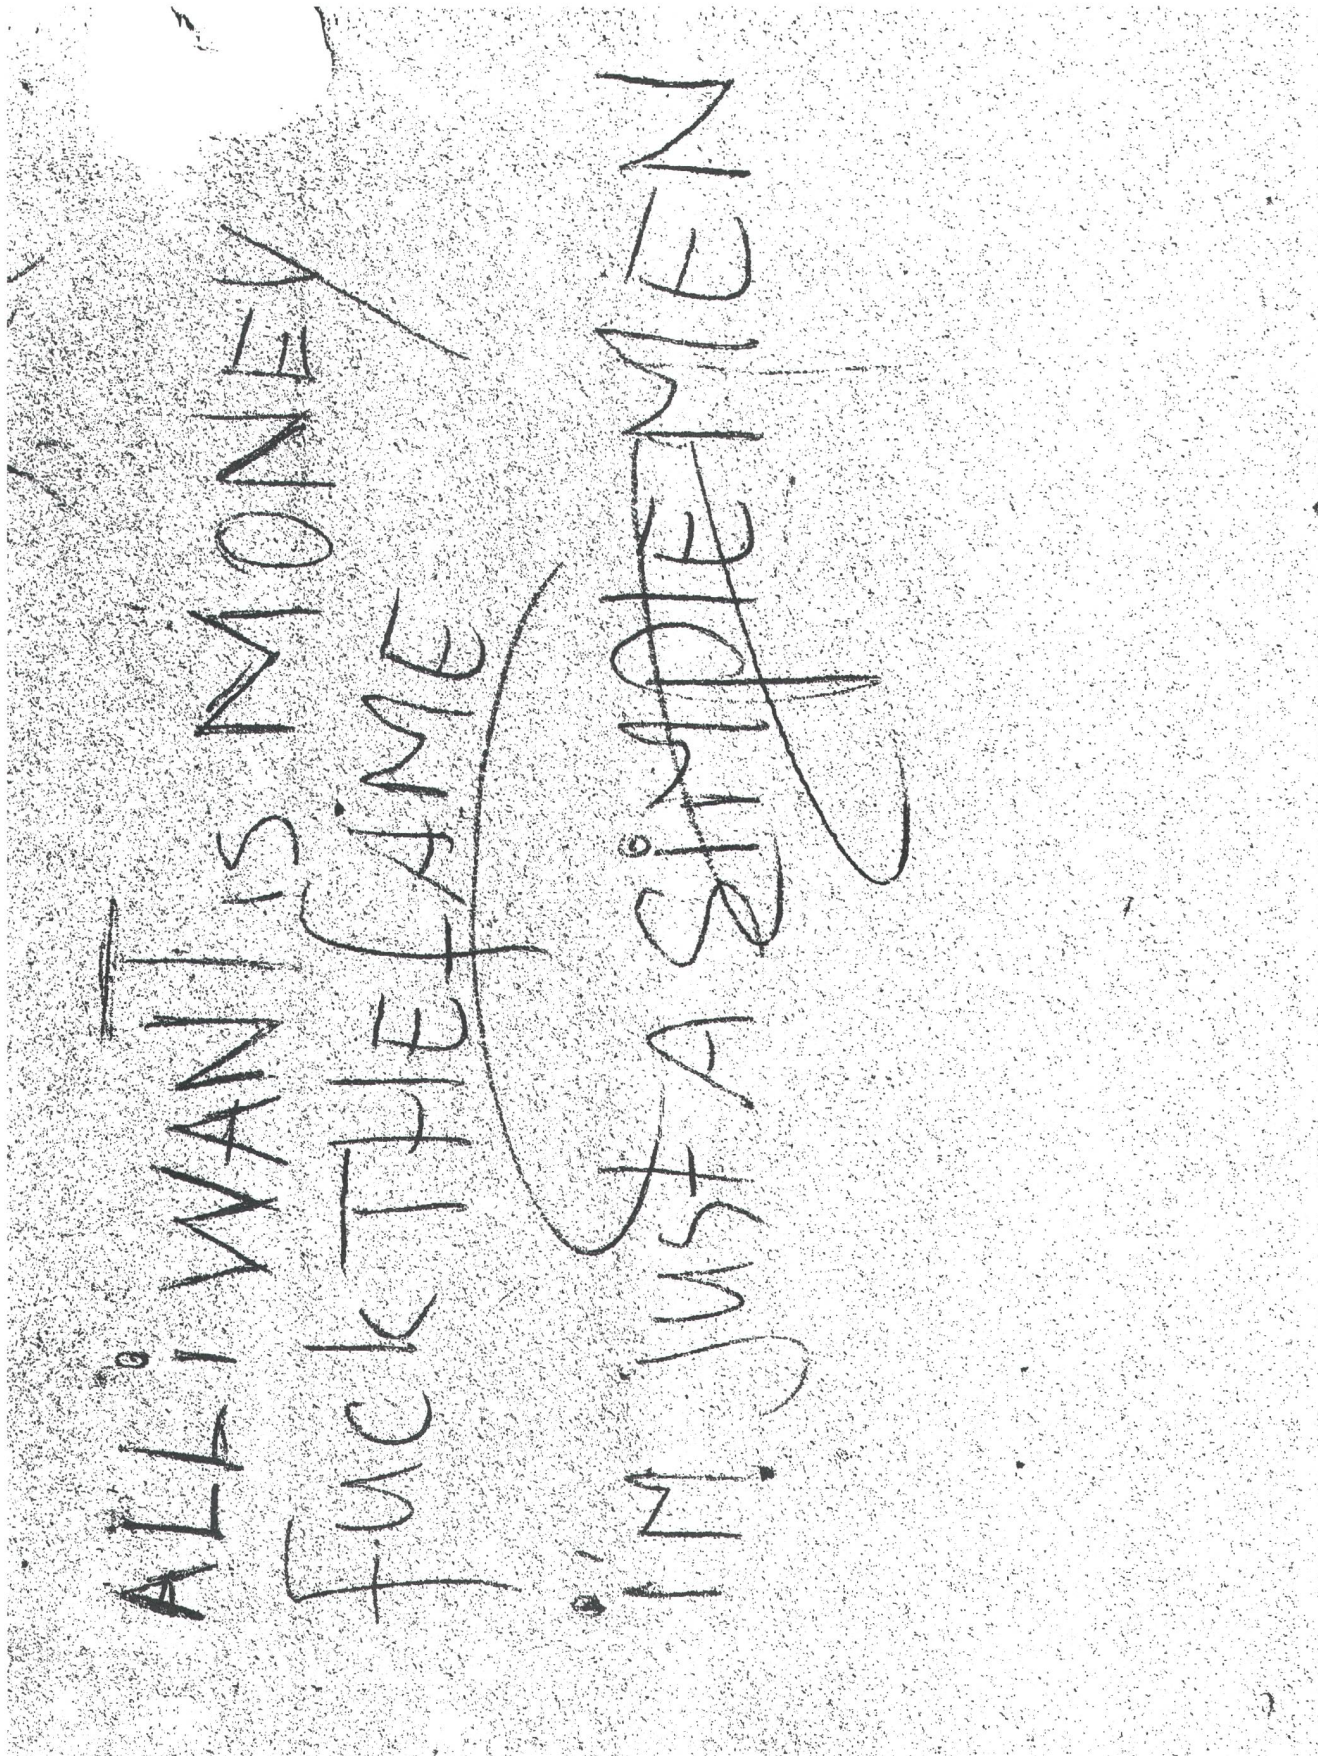 ALL i WANT IS MONEY
FUCK THE fAME
i'M JUST A SiMPLE MEN